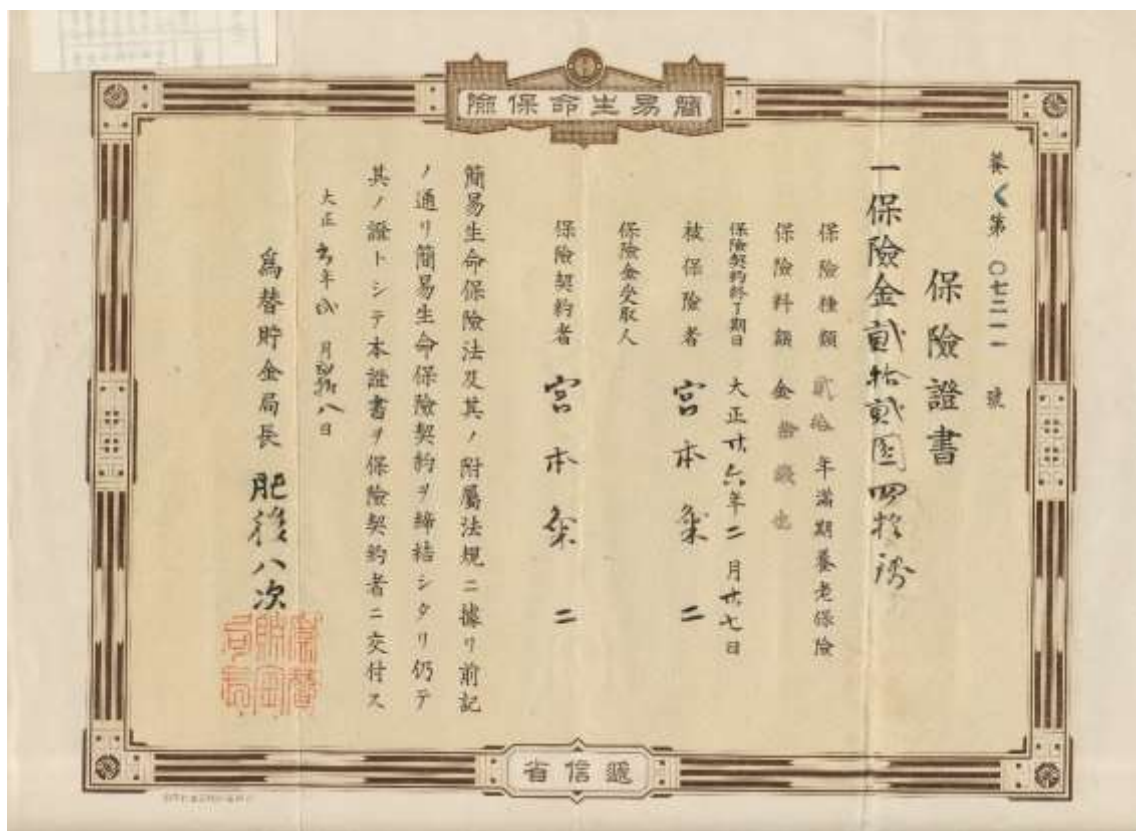 簡易生命保險
養く第〇七二一一號
保險證書
一保險金貳拾貳圓四拾錢
保險種類 貳拾年滿期養老保險
保險料額 金拾錢也
保險契約終了期日 大正廿六年二月廿七日
被保險者 宮本粂二
保險金受取人
保險契約者 宮本粂二
簡易生命保險法及其ノ附屬法規ニ據リ前記
ノ通リ簡易生命保險契約ヲ締結シタリ仍テ
其ノ證トシテ本證書ヲ保險契約者ニ交付ス
大正 年 月 八日
爲替貯金局長 肥後八次
爲替貯金局長
遞信省